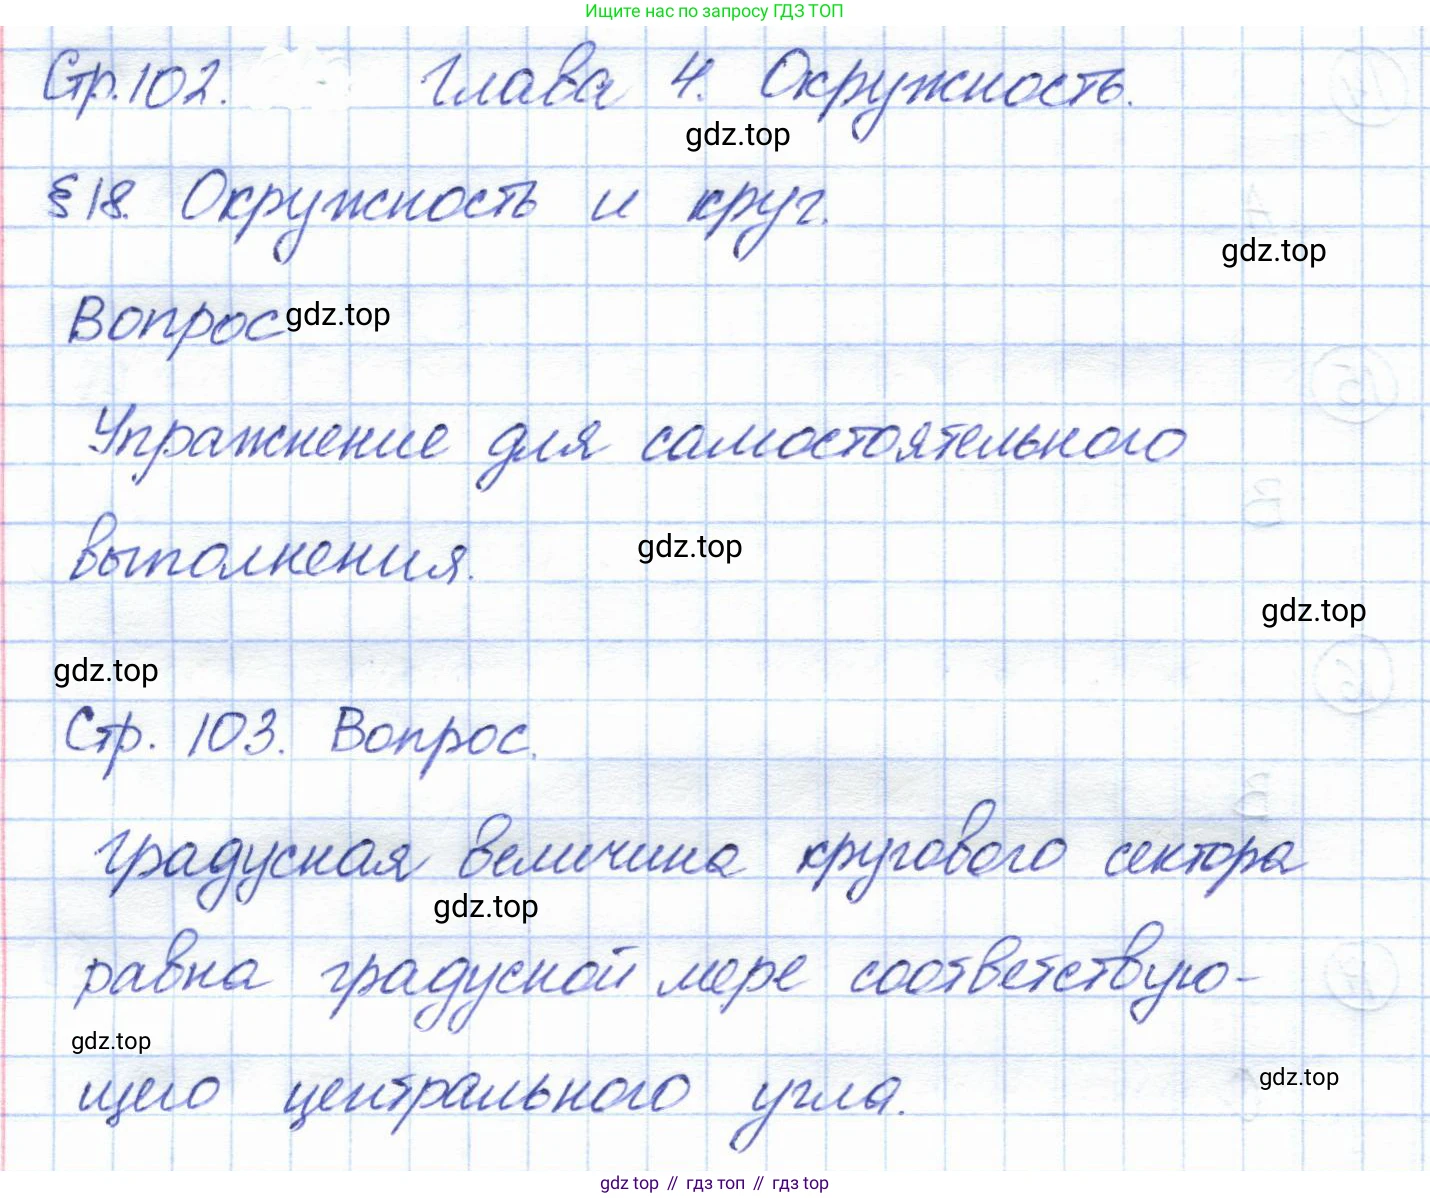 Ищите нас по запросу ГДЗ ТОП
Стр. 102. Глава 4. Окружность.
gdz.top
§ 18. Окружность и круг.
gdz.top
Вопрос gdz.top
Упражнение для самостоятельного
выполнения.
gdz.top
gdz.top
gdz.top
Стр. 103. Вопрос.
Градусная величина кругового сектора
gdz.top
равна градусной мере соответствую-
gdz.top
щего центрального угла.
gdz.top
gdz top // гдз топ // гдз top